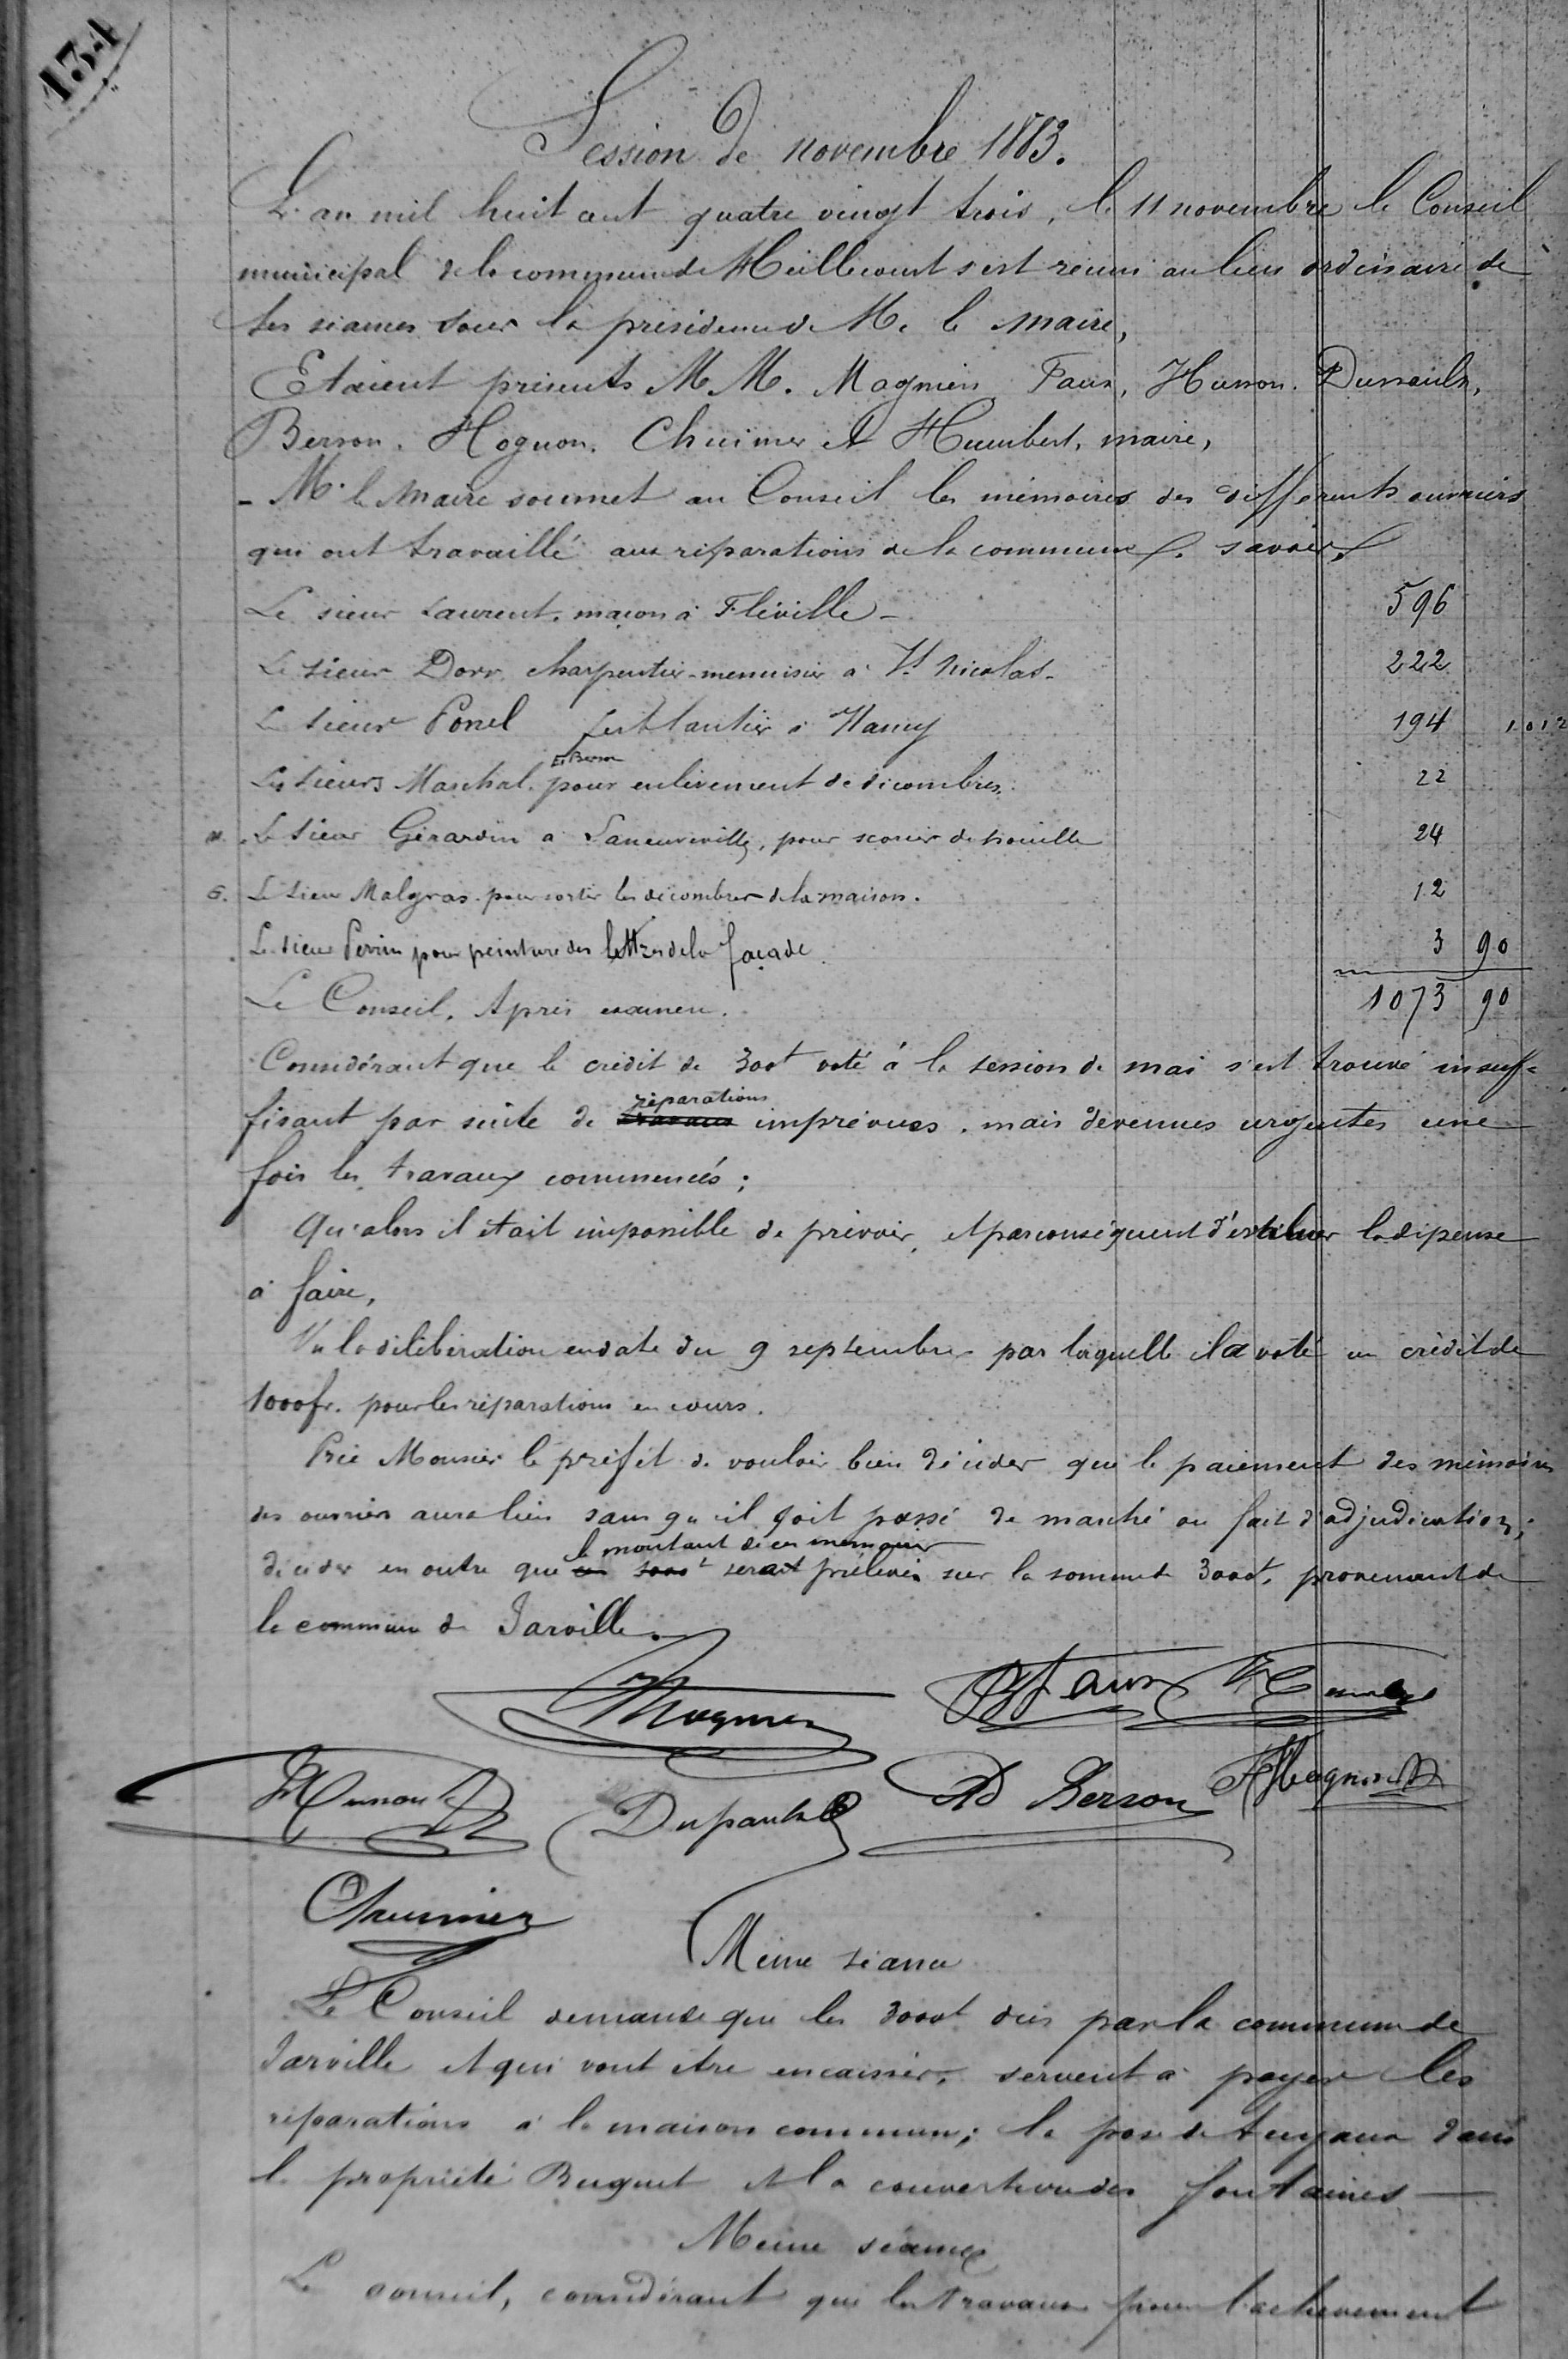 134
Session de novembre 1883.
L'an mil huit cent quatre vingt trois, le 11 novembre le Conseil
municipal de la commune de Heillecourt s'est réuni au lieu ordinaire de
ses séances sous la présidence de M. le Maire,
Etaient présents M M. Magnien, Faux, Husson. Dussaulx,
Berson. Hognon. Chuimer et Humbert, maire,
- M. le Maire soumet au Conseil les mémoires des différents ouvriers
qui ont travaillé aux réparations de la commune, savoir,
Le sieur Laurent, maçon à Fléville - 596
Le sieur Dorr, charpentier-menuisier à St Nicolas - 222
Le sieur Ponel ferblantier à Nancy 194 1012
Les sieurs Marchal et Berson pour enlèvement de décombres. 22
Le sieur Girardin à Laneuveville, pour scories de houille 24
6. Le sieur Malgras pour sortir les décombres de la maison. 12
Le sieur Perrin pour peinture des lettres de la façade 3 90
Le Conseil, Après examen. 1073 90
Considérant que le crédit de 300f voté à la session de mai s'est trouvé insuf-
fisant par suite de travaux réparations imprévues, mais devenues urgentes une
fois les travaux commencés;
Qu'alors il était impossible de prévoir, et par conséquent d'évaluer la dépense
à faire,
Vu la délibération en date du 9 septembre par laquelle il a voté un crédit de
1000 fr. pour les réparations en cours.
Prie Monsieur le préfet de vouloir bien décider que le paiement des mémoires
des ouvriers aura lieu sans qu'il soit passé de marché ou fait d'adjudication;
décider en outre que le montant de ces mémoires serait prélevé sur la somme de 3000f, provenant de
la commune de Jarville.
Magnien Faux
Dussaulx Ad Berson Hognon
Chuimer
Même séance
Le Conseil demande que les 3000f dûs par la commune de
Jarville et qui vont être encaissés, servent à payer les
réparations à la maison commune; la pose de tuyaux dans
la propriété Buquet et la couverture des fontaines -
Même séance
Le conseil, considérant que les travaux pour l'achèvement